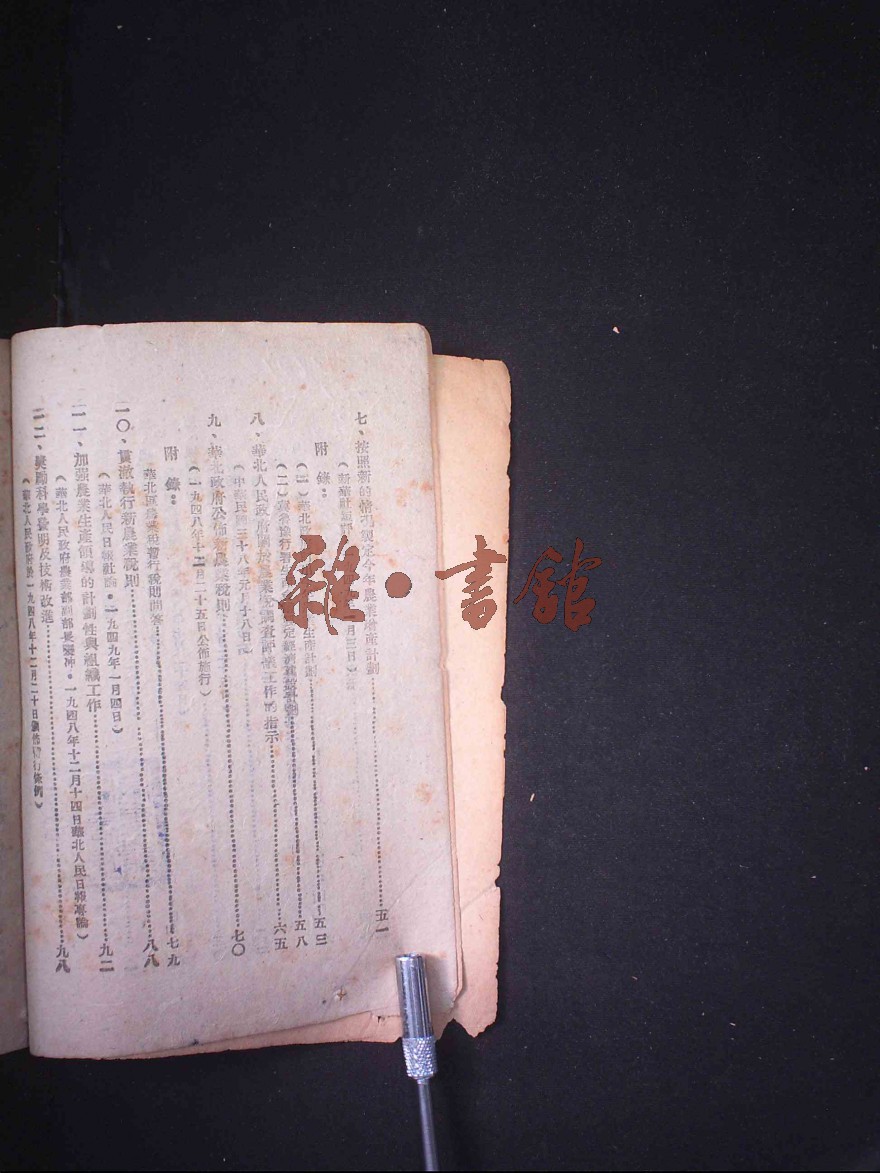 七、按照新的情况製定今年農業增產計劃……五一
（新華社短評 月三日）
附錄：
（一）華北 生產計劃……五三
（二）冀魯豫行署 定 計劃……五八
八、華北人民政府關於農業 調查 工作的指示……六五
（中華民國三十八年元月十八日）
九、華北政府公佈新農業稅則……七〇
（一九四八年十二月二十五日公佈施行）
附錄：
華北區農業稅暫行稅則問答……七九
一〇、貫澈執行新農業稅則……八八
（華北人民日報社論·一九四九年一月四日）
一一、加强農業生產領導的計劃性與組織工作……九二
（華北人民政府農業部副部長 ·一九四八年十二月十四日華北人民日報專論）
一二、獎勵科學發明及技術改進……九八
（華北人民政府於一九四八年十二月二十日頒佈暫行條例）
雜·書館